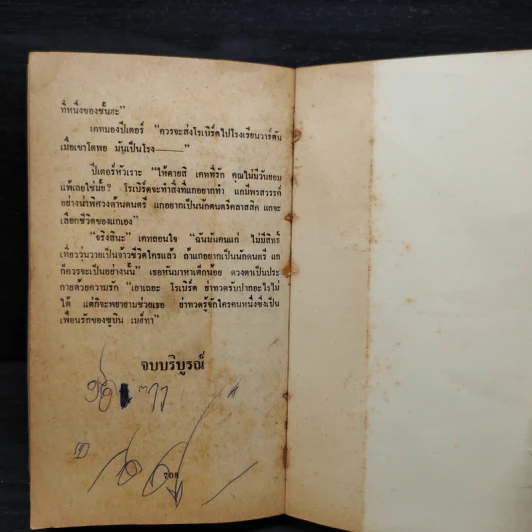 ที่หนึ่งของชั้นฮะ”
เคทมองปีเตอร์ “ควรจะส่งโรเบิร์ตไปโรงเรียนวาร์ตัน
เมื่อเขาโตพอ มันเป็นโรง———”
ปีเตอร์หัวเราะ “ให้ตายสิ เคทที่รัก คุณไม่มีวันยอม
แพ้เลยใช่มั้ย? โรเบิร์ตจะทำสิ่งที่แกอยากทำ แกมีพรสวรรค์
อย่างน่าพิศวงด้านดนตรี แกอยากเป็นนักดนตรีคลาสสิค แกจะ
เลือกชีวิตของแกเอง”
“จริงสินะ” เคทถอนใจ “ฉันมันคนแก่ ไม่มีสิทธิ์
เที่ยววุ่นวายเป็นจ้าวชีวิตใครแล้ว ถ้าแกอยากเป็นนักดนตรี แก
ก็ควรจะเป็นอย่างนั้น” เธอหันมาหาเด็กน้อย ดวงตาเป็นประ
กายด้วยความรัก “เอาเถอะ โรเบิร์ต ย่าทวดรับปากอะไรไม่
ได้ แต่ก็จะพยายามช่วยเธอ ย่าทวดรู้จักใครคนหนึ่งซึ่งเป็น
เพื่อนรักของซูบิน เมธ์ทา”
จบบริบูรณ์